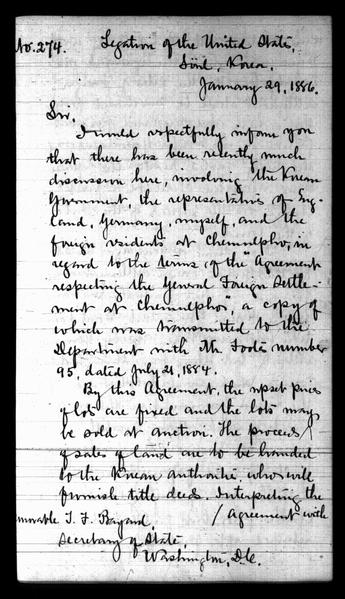 No. 274. Legation of the United States,
Söul, Korea.
January 29, 1886.
Sir.
I would respectfully inform you
that there has been recently much
discussion here, involving the Korean
Government, the representatives of Eng-
land, Germany, myself, and the
foreign residents at Chemulpho, in
regard to the terms of the "Agreement
respecting the General Foreign Settle-
ment at Chemulpho", a copy of
which was transmitted to the
Department with Mr. Foote's number
95, dated July 21, 1884.
By this Agreement, the upset price
of lots are fixed and the lots may
be sold at auction. The proceeds
of sales of land are to be handed
to the Korean authorities who will
furnish title deeds. Interpreting the
/ Agreement with
onorable T. F. Bayard,
Secretary of State,
Washington, D.C.